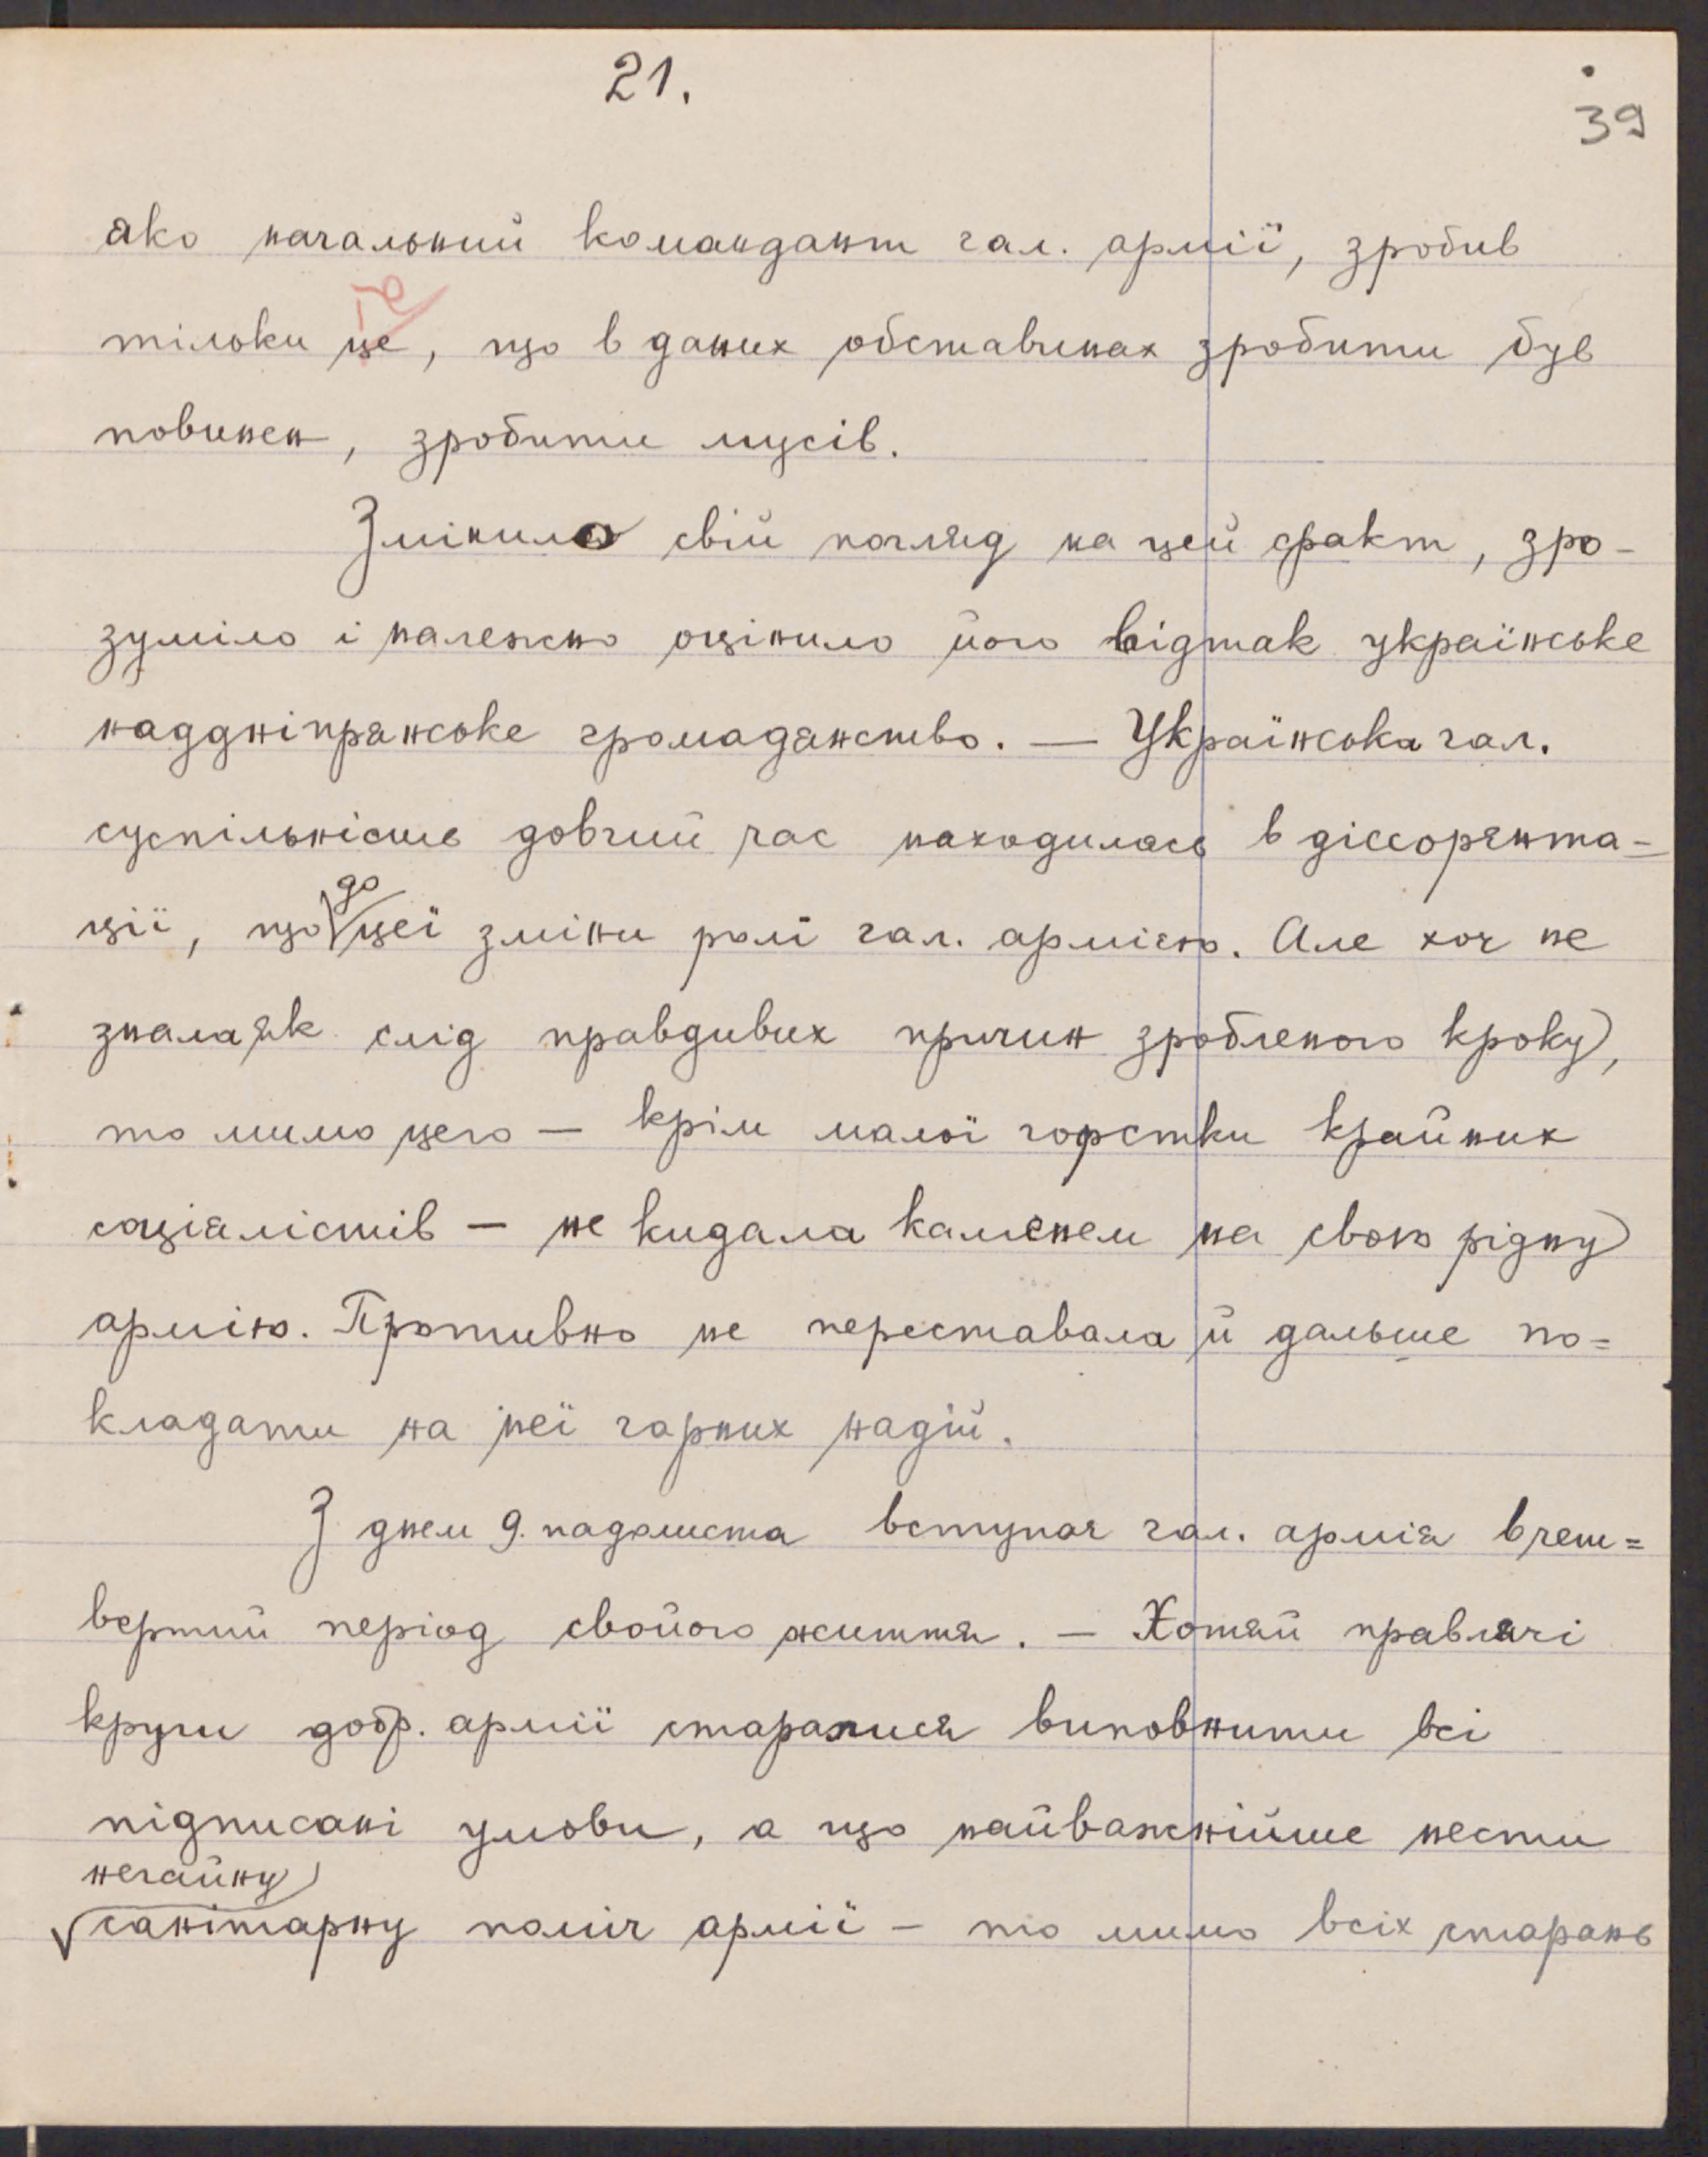 21.
39
яко начальний командант гал. армії, зробив
те
тільки це, що в даних обставинах зробити був
повинен, зробити мусів.
Змінило свій погляд на цей факт, зро-
зуміло і належно оцінило його відтак українське
наддніпрянське громадянство. — Українська гал.
суспільність довгий час находилась в діссорянта-
до
ції, що цеї зміни ролі гал. армією. Але хоч не
знала як слід правдивих причин зробленого кроку,
то мимо цего — крім малої горстки крайних
соціялістів — не кидала каменем на свою рідну
армію. Противно не переставала й дальше по=
кладати на неї гарних надій.
З днем 9. падолиста вступая гал. армія в чет=
вертий період свойого життя. — Хотяй правлячі
круги добр. армії старалися виповнити всі
підписані умови, а що найважнійше нести
негайну
санітарну поміч армії — то мимо всіх старань